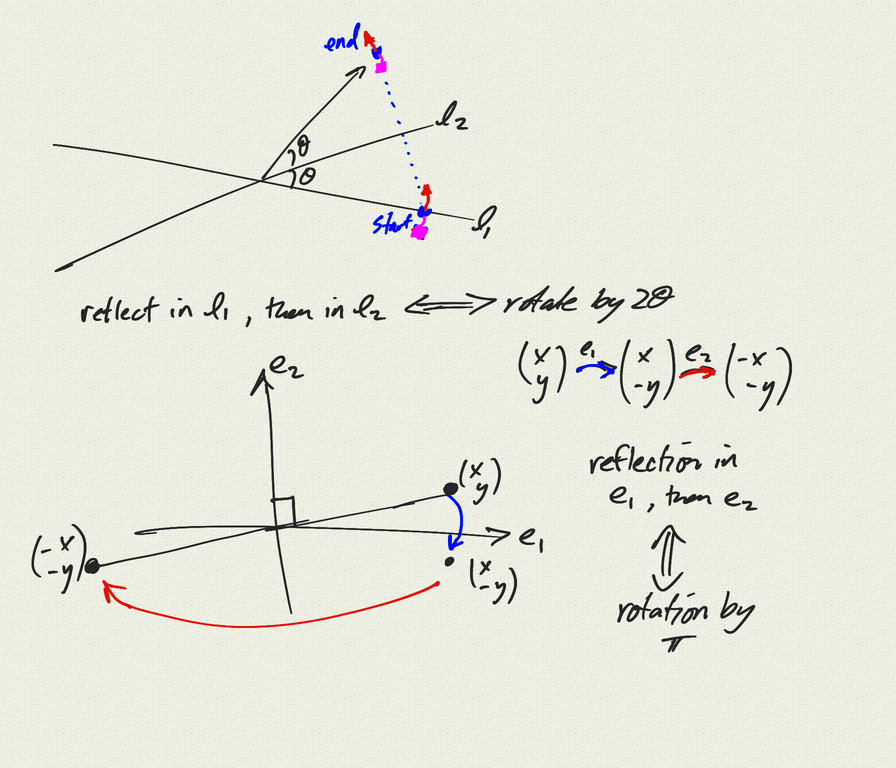 end
l₂
θ
θ
start
l₁
reflect in l₁, then in l₂ ⟺ rotate by 2θ
e₂
(x y) e₁→ (x -y) e₂→ (-x -y)
reflection in
e₁, then e₂
⇕
rotation by
π
(x y)
e₁
(-x -y)
(x -y)